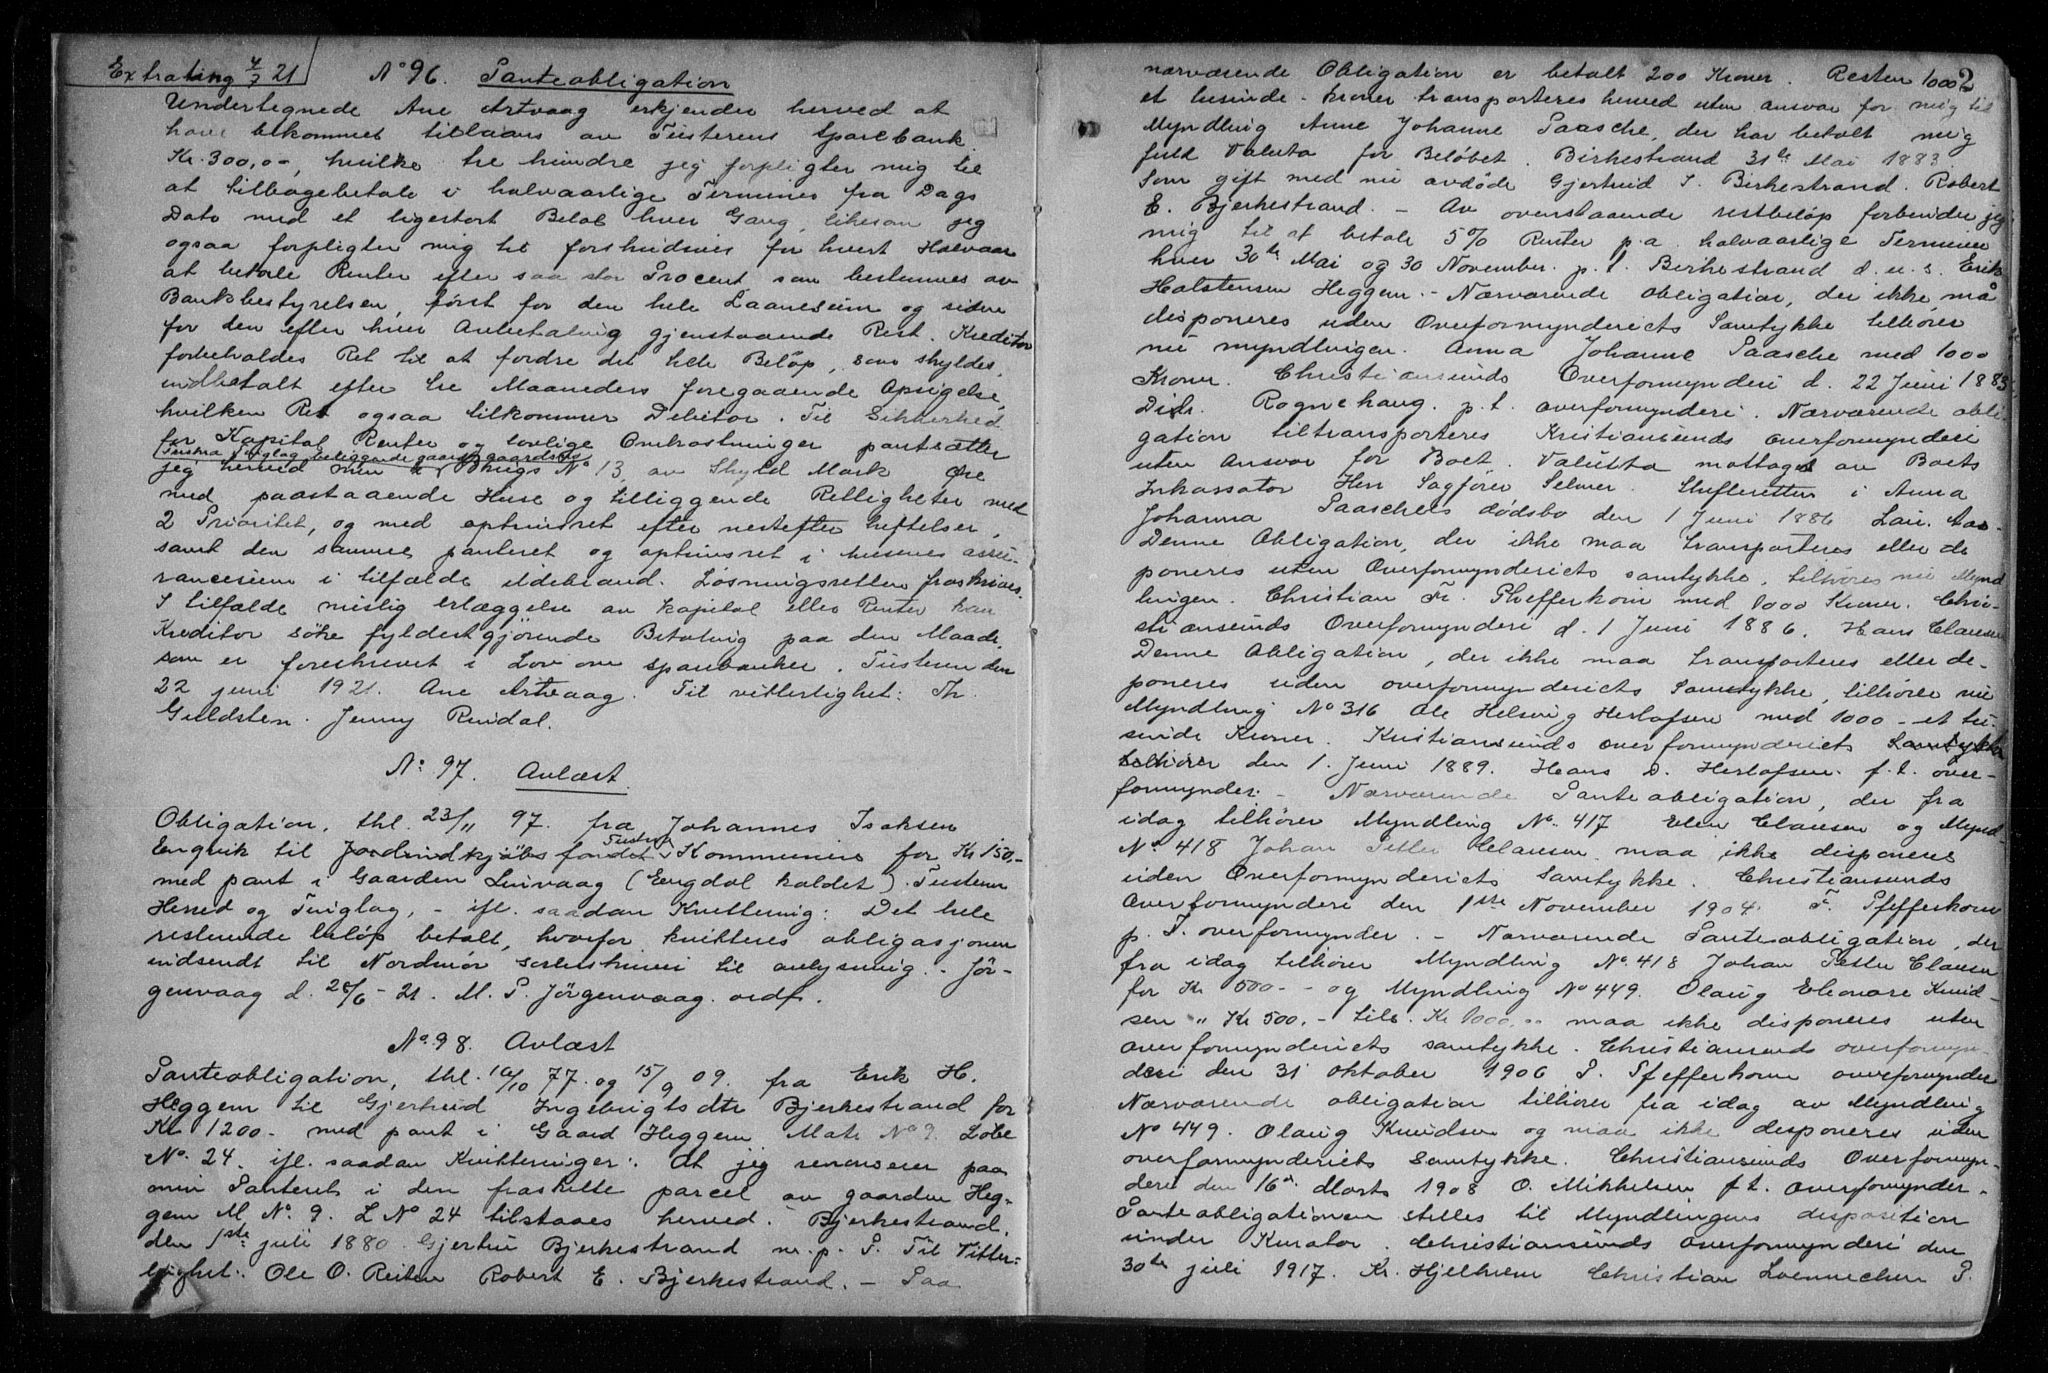 Extrating 4/7 21
No 96. Panteobligation
Undertegnede Ane Artvaag erkjender herved at
have bekommet tillaans av Tusterens Sparebank
Kr. 300,00, hvilke tre hundre jeg forpligter mig til
at tilbagebetale i halvaarlige Terminer fra Dags
Dato med et ligestort Beløb hver Gang, likesom jeg
ogsaa forpligter mig til forskudsvis for hvert Halvaar
at betale Renter efter saa stor Procent som bestemmes av
Bankbestyrelsen, først for den hele Laanesum og siden
for den efter hver Avbetaling gjenstaaende Rest. Kreditor
forbeholdes Ret til at fordre det hele Beløp, som skyldes,
indbetalt efter tre Maaneders foregaaende Opsigelse,
hvilken Ret ogsaa tilkommer Debitor. Til Sikkerhed
for Kapital Renter og lovlige Omkostninger pantsætter
Tustna Tinglag beliggende gaard gaards
jeg herved min Brugs No 13, av Skyld Mark Øre
med paastaaende Huse og tilliggende Rettigheter med
2 Prioritet, og med optrinsret efter nestefter heftelser,
samt den samme panteret og optrinsret i husenes assu-
rancesum i tilfælde ildebrand. Løsningsretten fraskrives.
I tilfælde mislig erlæggelse av kapital eller Renter kan
Kreditor søke fyldestgjørende Betaling paa den Maade,
som er foreskrevet i Lov om sparebanker. Tusteren den
22 juni 1921. Ane Artvaag. Til vitterlighet: Th.
Guldsten. Jenny Rendal.
No. 97. Avlæst
Obligation, thl. 23/11 97. fra Johannes Isaksen
Tustern
Engvik til Jordindkjøbsfondet Kommunes for Kr 150,-
med pant i Gaarden Leirvaag (Engdal kaldet) i Tusteren
Herred og Tinglag, - ifl. saadan Kvittering: Det hele
resterende beløp betalt, hvorfor kvitteres obligasjonen
indsendt til Nordmør sorenskriveri til avlysning. - Jør-
genvaag d. 28/6 - 21. M. P. Jørgenvaag. ordf.
No. 98. Avlæst
Panteobligation, thl. 16/10 77. og 15/9 09. fra Erik H.
Heggem til Gjertrud Ingebrigtsdtr Bjerkestrand for
Kr 1200- med pant i Gaard Heggem Matr No 9. Løbe
No. 24. ifl. saadan Kvitteringer: At jeg renonserer paa
min Panteret i den fraskilte parcel av gaarden Heg-
gem M No. 9. L No 24 tilstaaes herved. Bjerkestrand,
den 1ste juli 1880. Gjertru Bjerkestrand m. p. P. Til Vitter-
lighet: Ole O. Reiten Robert E. Bjerkestrand. - Paa
2
nærværende Obligation er betalt 200 Kroner. Resten 1000
et tusinde - kroner transporteres herved uten ansvar for mig til
Myndling Anne Johanne Paasche, der har betalt mig
fuld Valuta for Beløbet. Birkestrand 31te Mai 1883.
Som gift med nu avdøde Gjertrud I. Birkestrand. Robert
E. Bjerkestrand. - Av ovenstaaende restbeløp forbinder jeg
mig til at betale 5% Renter p.a. halvaarlige Terminer
hver 30te Mai og 30 November. p. t. Birkestrand d. u. s. Erik
Halstensen Heggem. - Nærværende obligation, der ikke må
disponeres uden Overformynderiets Samtykke tilhører
nu myndlingen. Anna Johanne Paasche med 1000
Kroner. Christiansunds Overformynderi d. 22 Juni 1883
Didr. Rognehaug. p.t. overformynderi. Nærværende obli
gation tiltransporteres Kristiansunds overformynderi
uten Ansvar for Boet. Valutta mottages av Boets
Inkassator Herr Sagfører Selmer. Skifteretten i Anna
Johanna Paasches dødsbo den 1 Juni 1886 Lau. Aas-
Denne Obligation, der ikke maa transporteres eller de
poneres uten Overformynderiets samtykke, tilhøres nu Mynd
lingen. Christian Fr. Pfefferkorn med 1000 Kroner. Chri-
stiansunds Overformynderi d. 1 Juni 1886. Hans Clausen
Denne Obligation, der ikke maa transporteres eller de-
poneres uden overformynderiets Samtykke, tilhører nu
Myndling No 316 Ole Helsing Herlofsen med 1000 - et tu-
sinde Kroner. Kristiansunds overformynderiets Samtykke
tilhører den 1. Juni 1889. Hans D. Herlofsen. f.t. over-
formynder. - Nærværende Panteobligation, der fra
idag tilhører Myndling No. 417 Elin Clausen og Mynd
No 418 Johan Petter Clausen, maa ikke disponeres
uden Overformynderiets Samtykke. Christiansunds
Overformynderi den 1ste November 1904. F. Pfefferkorn
p. T. overformynder. - Nærværende Panteobligation, der
fra idag tilhører Myndling No. 418 Johan Petter Clausen
for Kr 500.- og Myndling No 449. Olaug Eleonore Knud-
sen " Kr 500. - tils. Kr 1000,00 maa ikke disponeres uten
overformynderiets samtykke. Christiansunds overformyn-
deri den 31 oktober 1906 P. Pfefferkorn overformynder
Nærværende obligation tilhører fra idag av Myndling
No 449. Olaug Knudsen og maa ikke desponeres uden
overformynderiets samtykke. Christiansunds Overformyn-
deri den 16de Marts 1908 O. Mikkelsen f.t. overformynder.
Panteobligationen stilles til Myndlingens disposition
under Kurator. Christiansunds overformynderi den
30te juli 1917. Kr. Hjelhrem Christian Loennechen P.